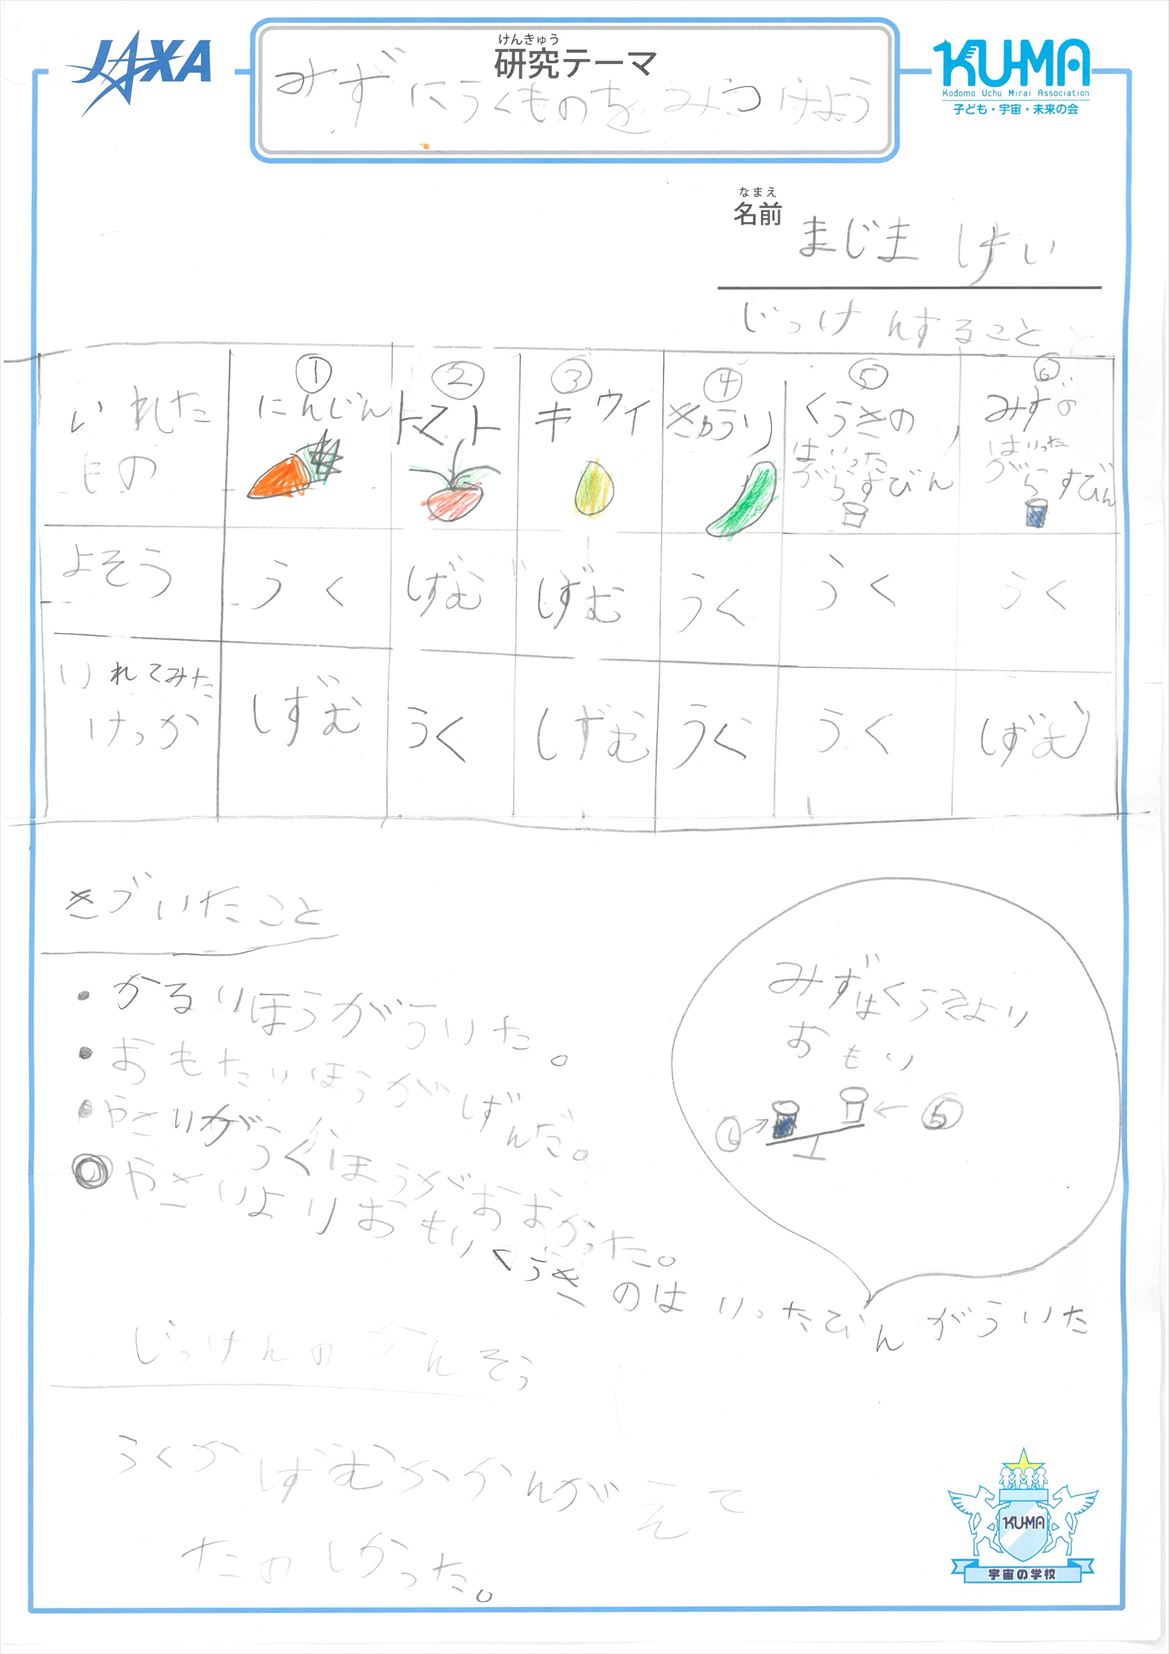 JAXA
けんきゅう
研究テーマ
みずにうくものをみつけよう
KU-MA
Kodomo Uchu Mirai Association
子ども・宇宙・未来の会
なまえ
名前
まじま けい
じっけんすること
いれた
もの
① にんじん
② トマト
③ キウイ
④ きゅうり
⑤ くうきの
はいった
がらすびん
⑥ みずの
はいった
がらすびん
よそう
うく
しずむ
しずむ
うく
うく
うく
いれてみた
けっか
しずむ
うく
しずむ
うく
うく
しずむ
きづいたこと
・かるいほうがういた。
・おもたいほうがしずんだ。
・やさいがうくほうがおおかった。
◎やさいよりおもいくうきのはいったびんがういた
みずはくうきより
おもい
⑥→
←⑤
じっけんのかんそう
うくかしずむかかんがえて
たのしかった。
KU-MA
宇宙の学校